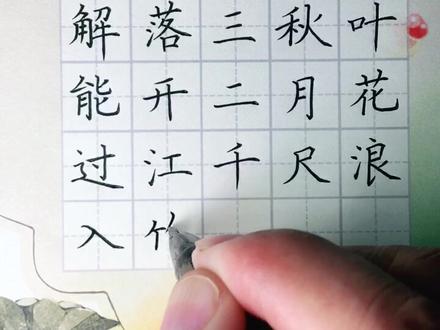 解落三秋叶
能开二月花
过江千尺浪
入